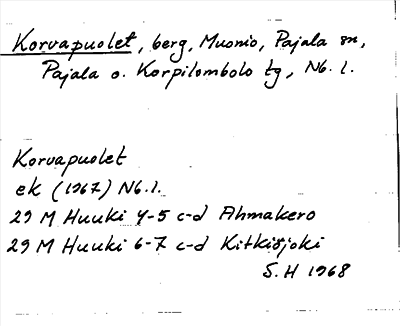 Korvapuolet, berg, Muonio, Pajala sn,
Pajala o. Korpilombolo tg, Nb. l.
Korvapuolet
ek (1967) Nb. l.
29 M Huuki 4-5 c-d Ahmakero
29 M Huuki 6-7 c-d Kitkiöjoki
S. H 1968